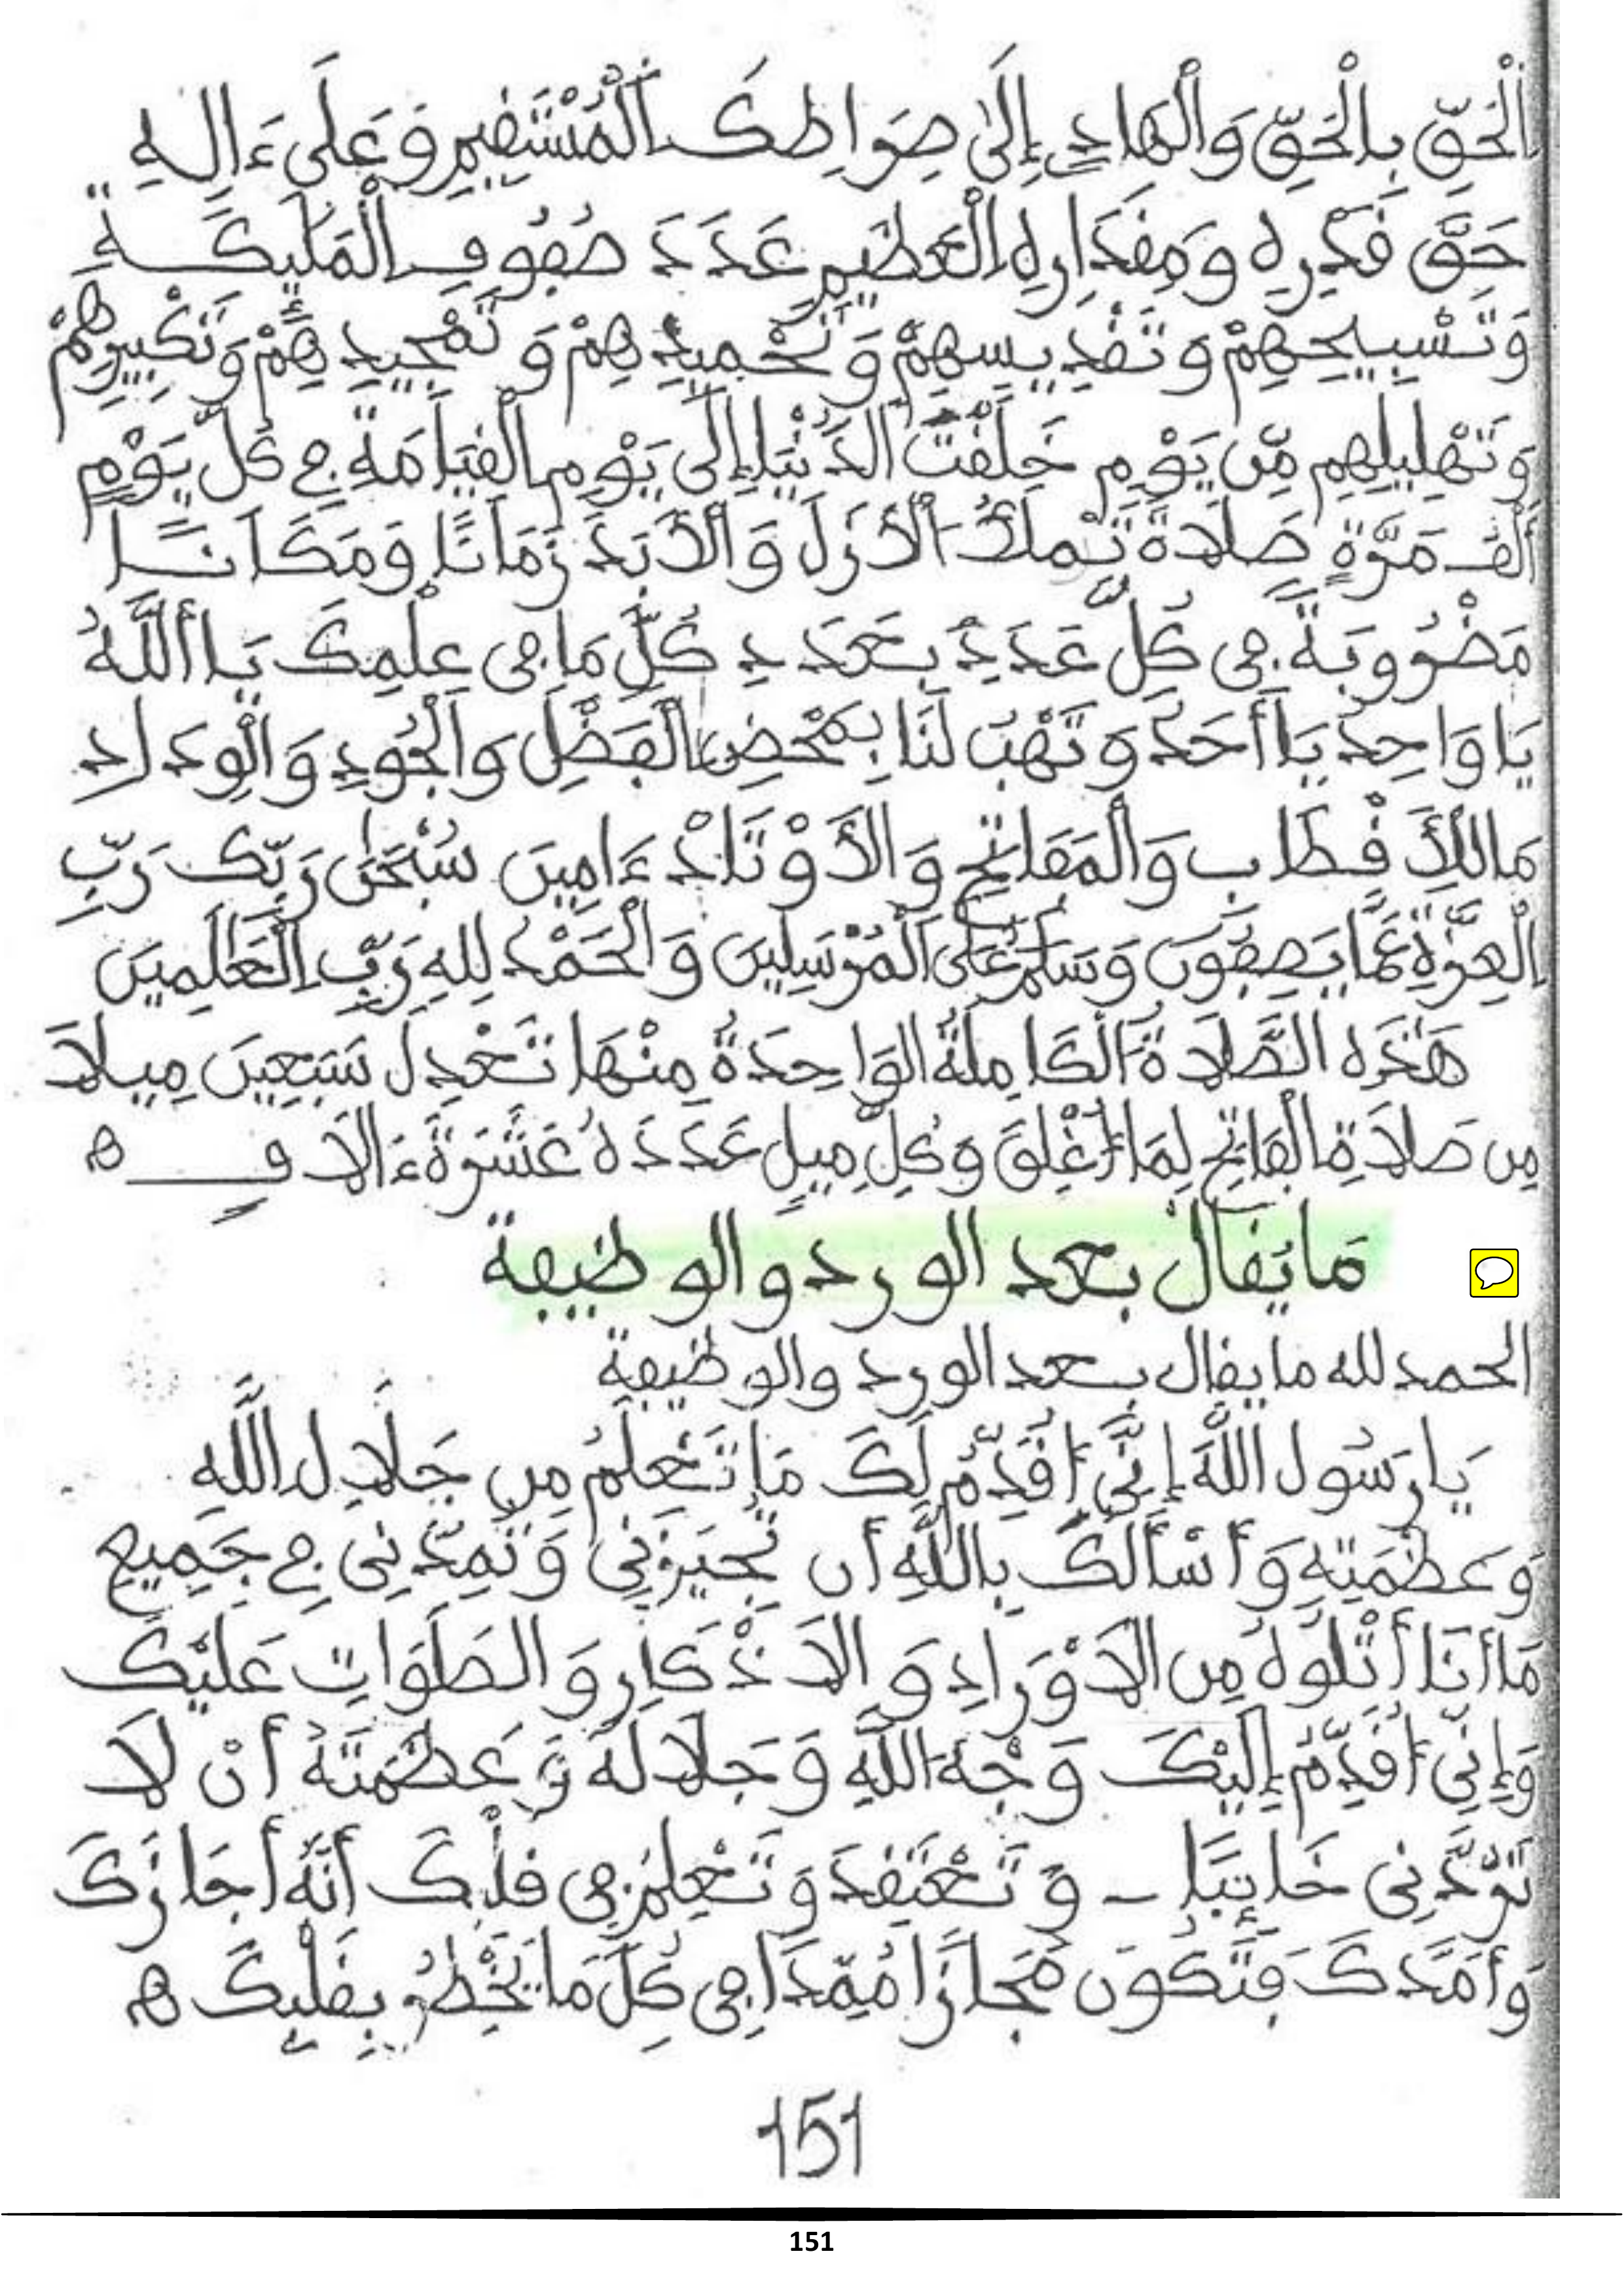 اَلْحَقِّ بِالْحَقِّ وَالْهَادِى إِلَىٰ صِرَاطِكَ اَلْمُسْتَقِيمِ وَعَلَىٰ ءَالِهِ
حَقَّ قَدْرِهِ وَمِقْدَارِهِ الْعَظِيمِ عَدَدَ صُفُوفِ الْمَلَٰئِكَةِ
وَتَسْبِيحِهِمْ وَتَقْدِيسِهِمْ وَتَحْمِيدِهِمْ وَتَمْجِيدِهِمْ وَتَكْبِيرِهِمْ
وَتَهْلِيلِهِم مِّن يَوْمِ خَلَقْتَ الدُّنْيَا إِلَىٰ يَوْمِ الْقِيَامَةِ فِى كُلِّ يَوْمٍ
أَلْفَ مَرَّةٍ صَلَاةً تَمْلَأُ الْأَزَلَ وَالْأَبَدَ زَمَانًا وَمَكَانًا
مَضْرُوبَةً فِى كُلِّ عَدَدٍ بِعَدَدِ كُلِّ مَا فِى عِلْمِكَ يَا أَللَّهُ
يَا وَاحِدُ يَا أَحَدُ وَتَهَبْ لَنَا بِمَحْضِ الْفَضْلِ وَالْجُودِ وَالْوِدَادِ
مَا لِلْأَقْطَابِ وَالْمَفَاتِحِ وَالْأَوْتَادْ ءَامِينَ سُبْحَٰنَ رَبِّكَ رَبِّ
الْعِزَّةِ عَمَّا يَصِفُونَ وَسَلَٰمٌ عَلَى الْمُرْسَلِينَ وَالْحَمْدُ لِلهِ رَبِّ الْعَٰلَمِينَ
هَٰذِهِ الصَّلَاةُ الْكَامِلَةُ الوَاحِدَةُ مِنْهَا تَعْدِلُ سَبْعِينَ مِيلَا
مِن صَلَاةِ الْفَاتِحِ لِمَا أُغْلِقَ وَكُلِّ مِيلٍ عَدَدَهُ عَشَرَةَ ءَالَافٍ ه
مَا يُقَالُ بعد الورد والوظيفة
الحمد لله ما يقال بعد الورد والوظيفة
يَا رَسُولَ اللَّهِ إِنِّى أُقَدِّمُ لَكَ مَا تَعْلَمُ مِن جَلَالِ اللَّهِ
وَعَظَمَتِهِ وَأَسْأَلُكَ بِاللَّهِ أَن تُجِيزَنِى وَتُمِدَّنِى فِى جَمِيعِ
مَا أَنَا أَتْلُوهُ مِن الْأَوْرَادِ وَالْأَذْكَارِ وَالصَّلَوَاتِ عَلَيْكَ
وَإِنِّى أُقَدِّمُ إِلَيْكَ وَجْهَ اللَّهِ وَجَلَالَهُ وَعَظَمَتَهُ أَنْ لَا
تَرُدَّنِى خَائِبًا - وَتَعْتَقِدَ وَتَعْلَمْ فِى قَلْبِكَ أَنَّهُ أَجَازَكَ
وَأَمَدَّكَ فَتَكُون مُجَازًا مُمَدًّا فِى كُلِّ مَا يَخْطُرُ بِقَلْبِكَ ه
151
151